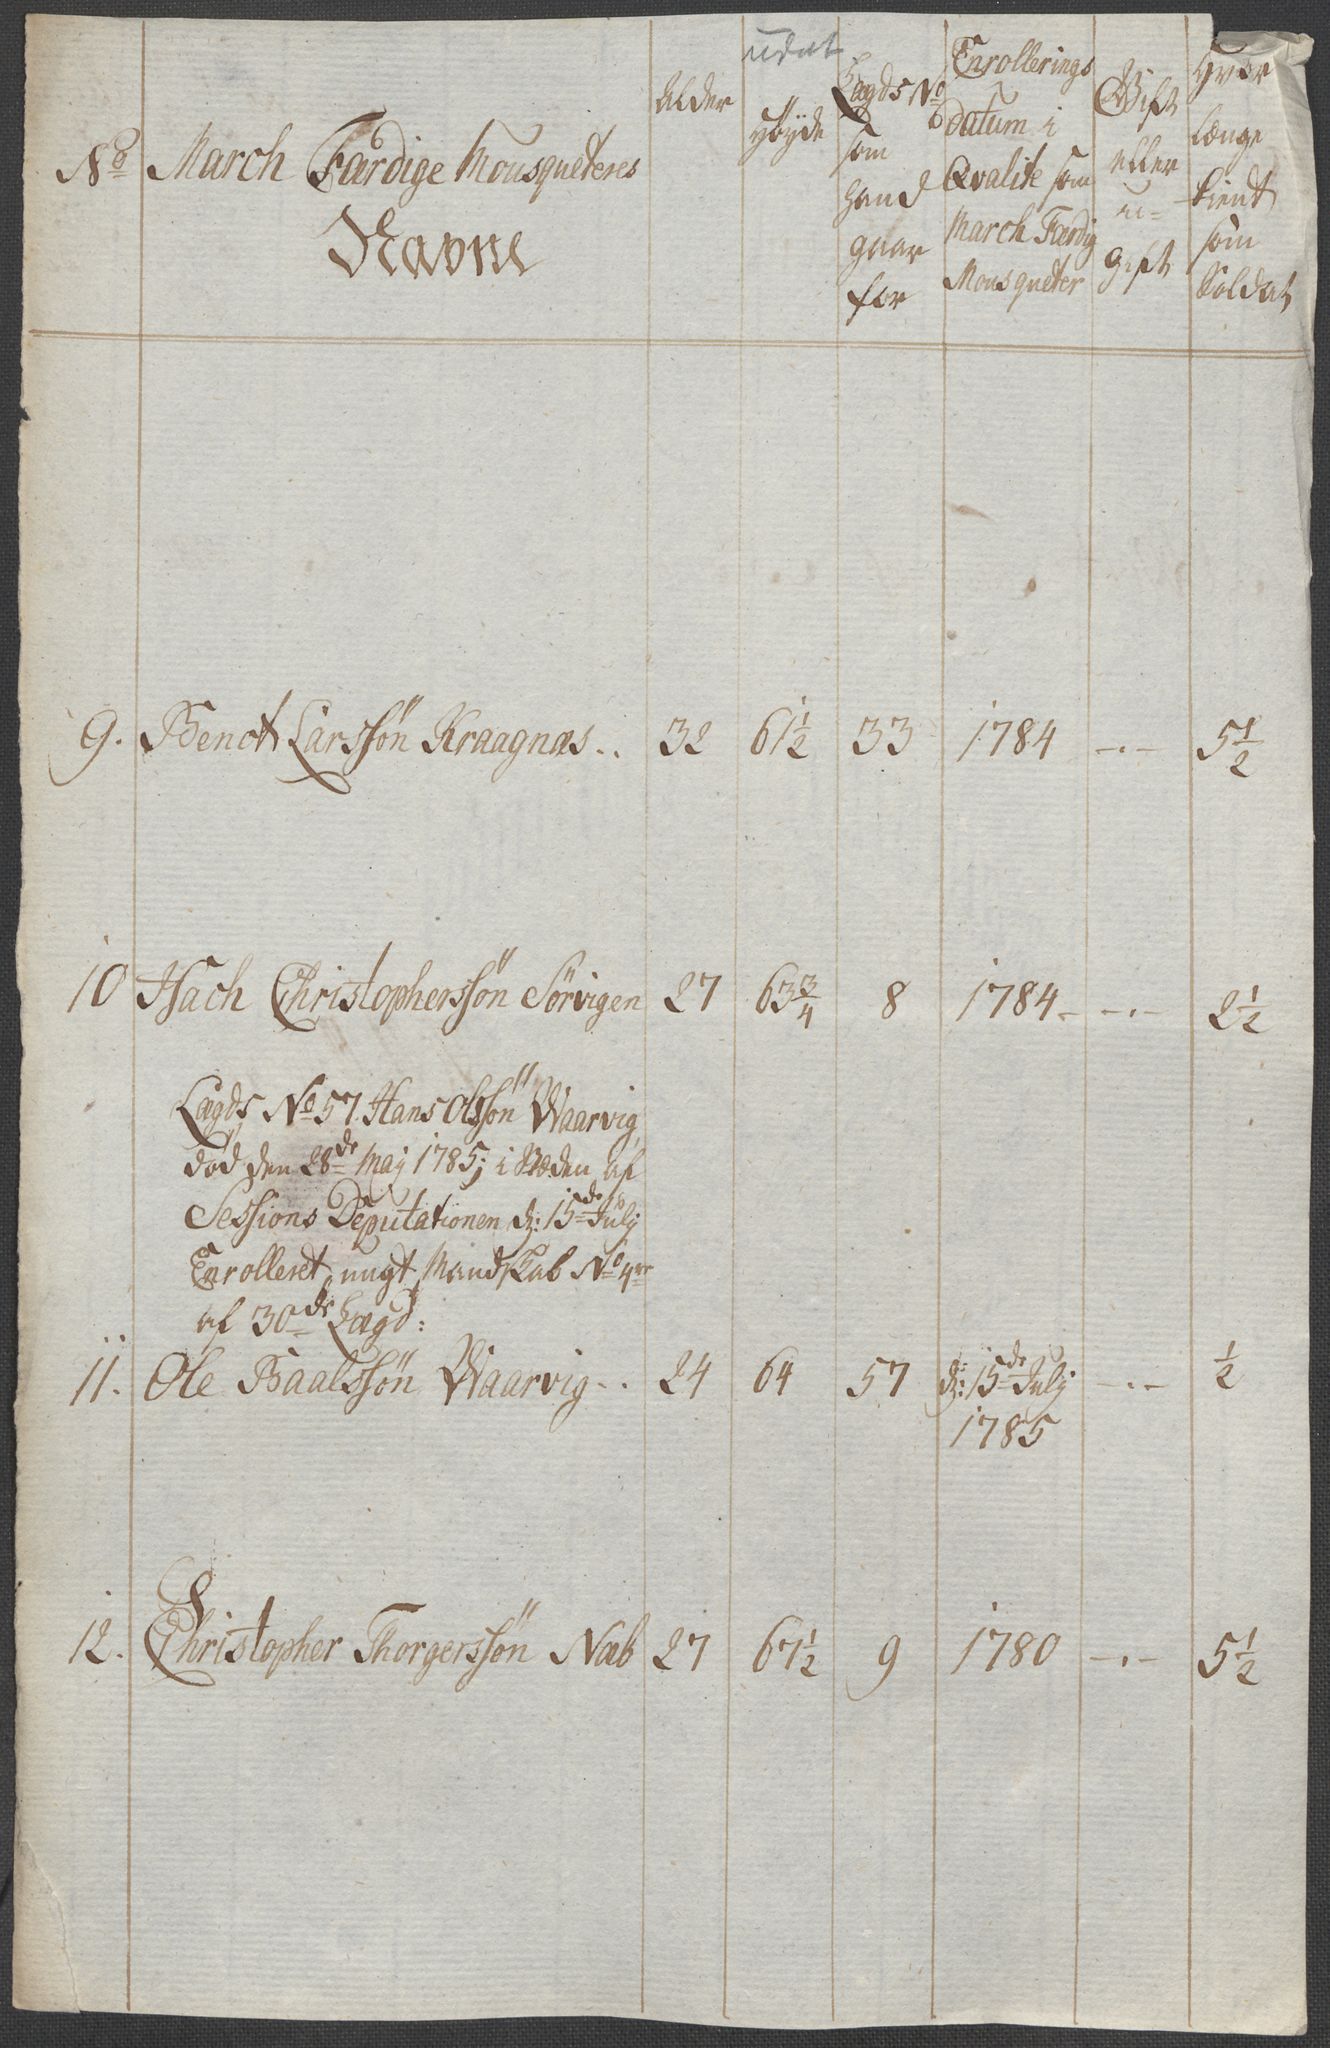 udat
No March Færdige Mousqueteres Navne
Alder
Høyde
Lægds No som hand gaar for
Enrollerings datum i Qvalite som March Færdig Mousqueter
Gift eller u=gift
Hvor længe tient som Soldat
9. Benct Larssön Kraagnæs.. 32 61 1/2 33 1784 -.- 5 1/2
10 Isach Christopherssön Sörvigen 27 63 3/4 8 1784 - -.- 2 1/2
Lægds No 57. Hans Olssön Waarvig
död den 28de May 1785; i Stæden af
Sessions Deputationen d: 15de July
Enrolleret ungt Mandskab No 4
af 30de Lægd:
11. Ole Baalssön Waarvig.. 24 64 57 d: 15de July -.- 1/2
1785
12. Christopher Thorgerssön Næb 27 67 1/2 9 1780 -.- 5 1/2